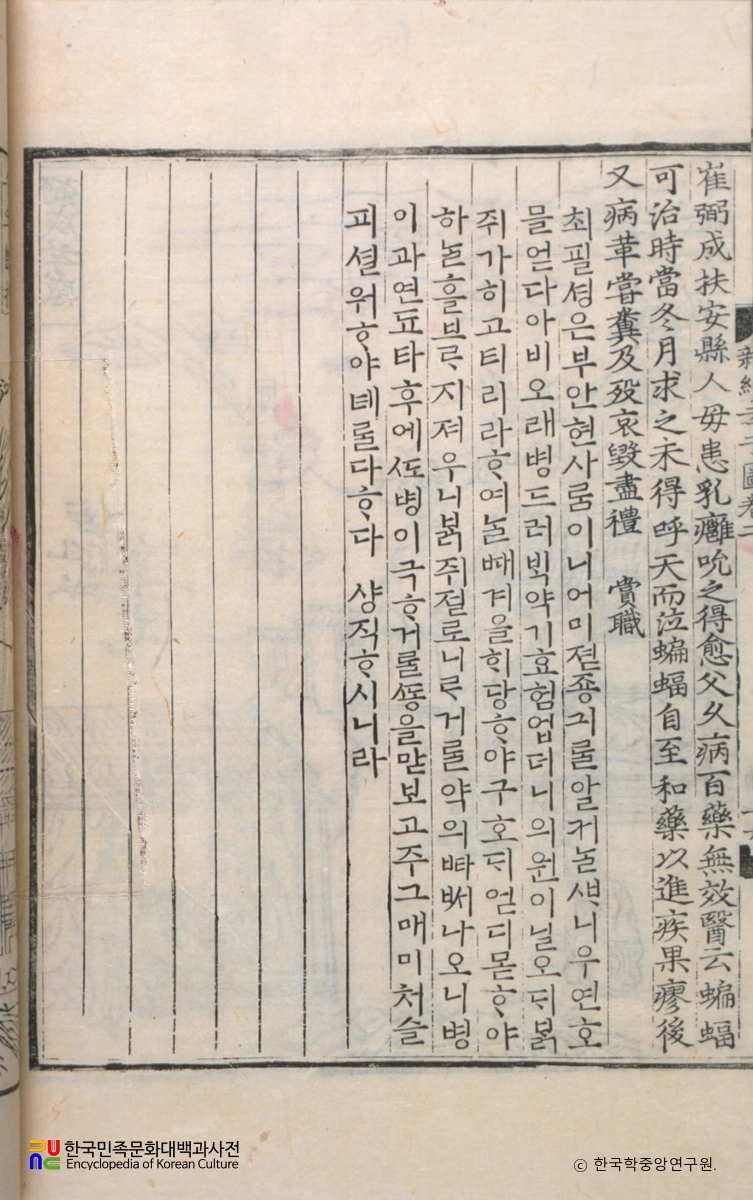 崔弼成扶安縣人毋患乳癰吮之得愈父久病百藥無效醫云蝙蝠
可治時當冬月求之未得呼天而泣蝙蝠自至和藥以進疾果瘳後
又病革嘗糞及歿哀毀盡禮 賞職
최필셩은부안현사ᄅᆞᆷ이니어미졋죵긔ᄅᆞᆯ알커ᄂᆞᆯᄲᆞ니우연호
믈얻다아비오래병드러ᄇᆡᆨ약기효험업더니의원이닐오ᄃᆡᄇᆞᆰ
쥐가히고티리라ᄒᆞ여ᄂᆞᆯᄣᅢ겨ᄋᆞᆯᄒᆡ당ᄒᆞ야구호ᄃᆡ얻디몯ᄒᆞ야
하ᄂᆞᆯ흘브ᄅᆞ지져우니ᄇᆞᆰ쥐절로니ᄅᆞ거ᄅᆞᆯ약의ᄩᅡᄡᅥ나오니병
이과연됴타후에ᄯᅩ병이극ᄒᆞ거ᄅᆞᆯᄯᅩᆼ을맏보고주그매미처슬
피셜워ᄒᆞ야톄ᄅᆞᆯ다ᄒᆞ다 샹직ᄒᆞ시니라
한국민족문화대백과사전
Encyclopedia of Korean Culture
© 한국학중앙연구원.